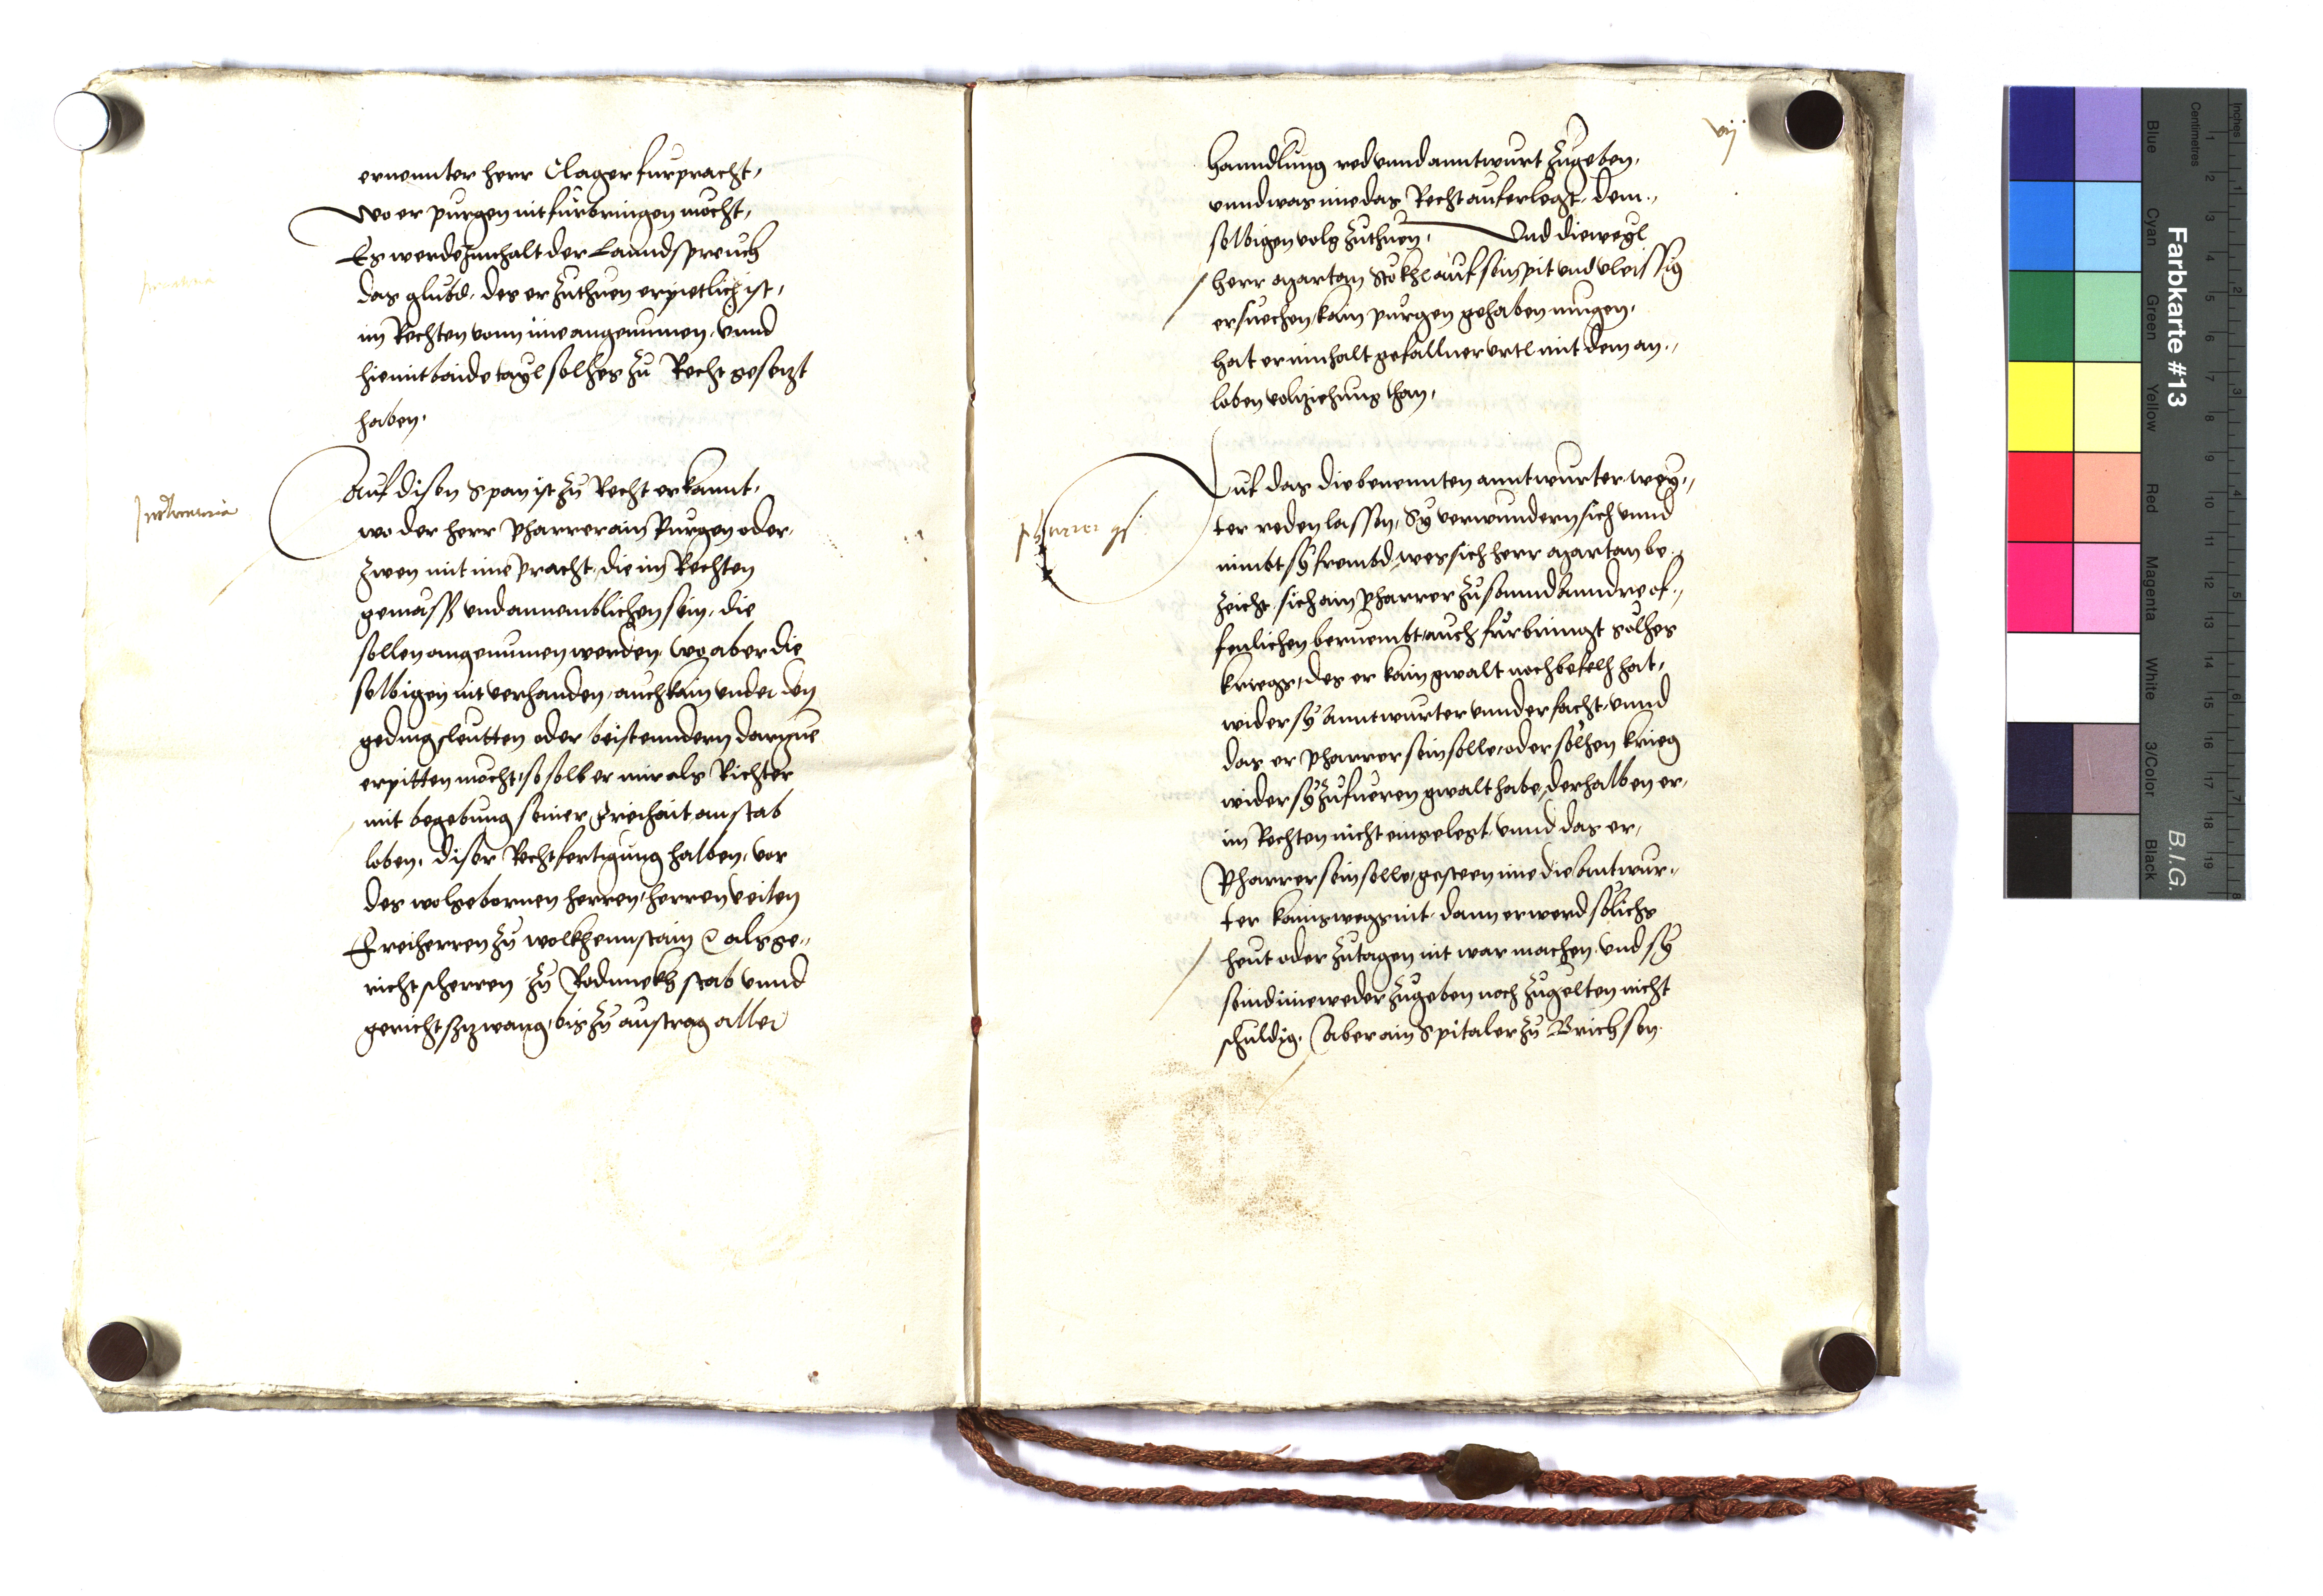 ernennter herr Clager furpracht,
Wo er purgen nit fürbringen möcht,
Es werde Innhalt der Lanndspreuch
das glubd, des er zuthuen erpietlich ist,
im Rechten vonn ime angenumen, vnnd
hiemit baide tayl solhes zu Recht gesetzt
haben.
Auf disen Span ist zu Recht erkannt,
wo der herr Pharrer ain Purgen oder
zwen mit ime pracht, die im Rechten
gemäss vnd annemblichen sein, die
sollen angenumen werden, Wo aber die
selbigen nit verhanden, auch kain vnder den
gedingsleutten oder beistenndern darzue
erpitten möcht, so soll er mir als Richter
mit begebung seiner Freihait, an stab
loben, diser Rechtfertigung halben, vor
des wolgebornen herren, herren Veiten
Freiherren zu Wolkhennstain als ge„
richtsherren zu Rodnnekh stab vnnd
gerichtszwang, bis zu austrag aller
vij
hanndlung red vnnd anntwurt zugeben,
vnnd was ime das Recht auferlegt, dem„
selbigen volg zuthuen, Vnd dieweyl
herr Martan Stökhl auf sein pit vnd vleissig
ersuechen, kain purgen gehaben mugen,
hat er innhalt gefallner vrtl mit dem an„
loben volziehung than,
Auf das die benennten anntwurter wey„
ter reden lassen, Sy verwundern sich vnnd
nimbt sy frembd, wes sich herr Martan be„
zeicht, sich ain Pharrer zu sannd Anndre of„
fenlichen beruembt, auch fürbringt solhes
kriegs, des er kain gwalt noch befelh hat,
wider sy Anntwurter vnnderfacht, vnnd
das er Pharrer sein solle, oder solhen krieg
wider sy zufueren gwalt habe, derhalben er,
im Rechten nicht eingelegt, vnnd das er,
Pharrer sein solle, gesteen ime die Antwur„
ter kains wegs nit, dann er werd solichs
heut oder zutagen nit war machen, vnd sy
seind ime weder zugeben noch zugelten nicht
schuldig, Aber ain Spitaler zu Brichsen
Farbkarte #13
B.I.G.
Inches
Centimetres
Blue
Cyan
Green
Yellow
Red
Magenta
White
3/Color
Black